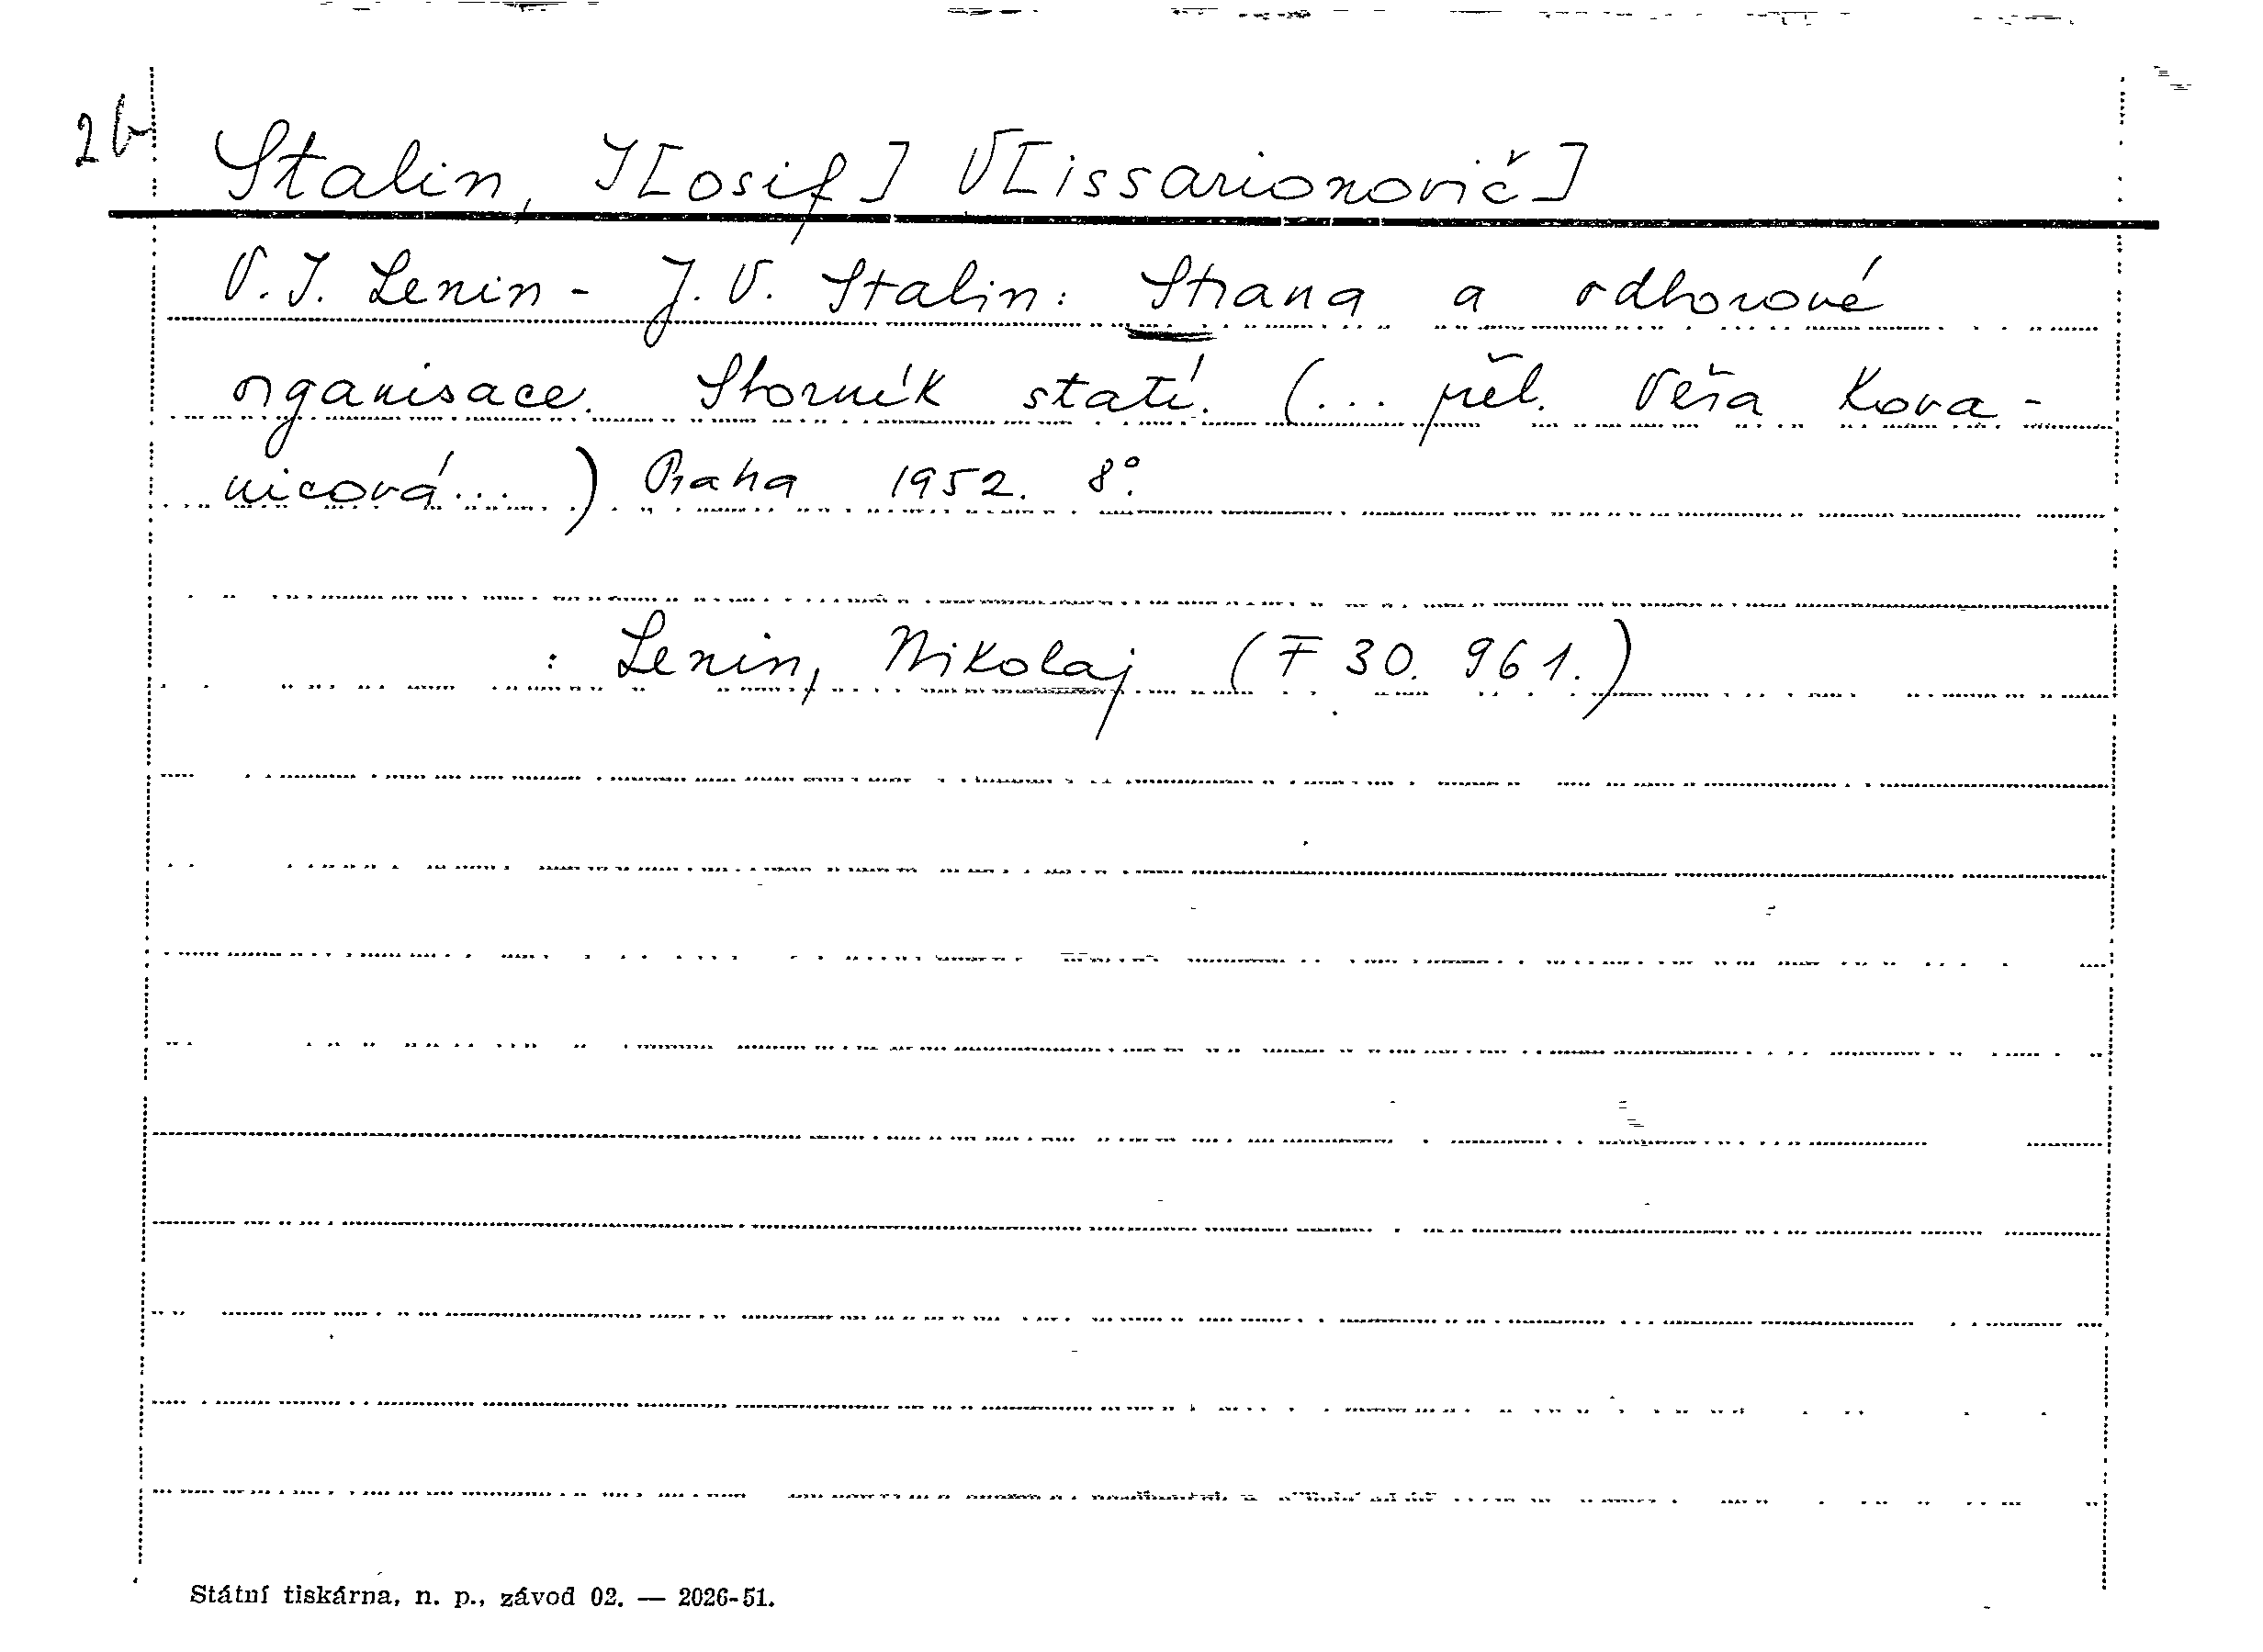 2b
Stalin, J[osif] V[issarionovič]
V. I. Lenin - J. V. Stalin: Strana a odborové
organisace. Sborník statí. (... přel. Věra Kova-
nicová...) Praha 1952. 8°.
: Lenin, Nikolaj (F 30. 961.)
Státní tiskárna, n. p., závod 02. — 2026-51.